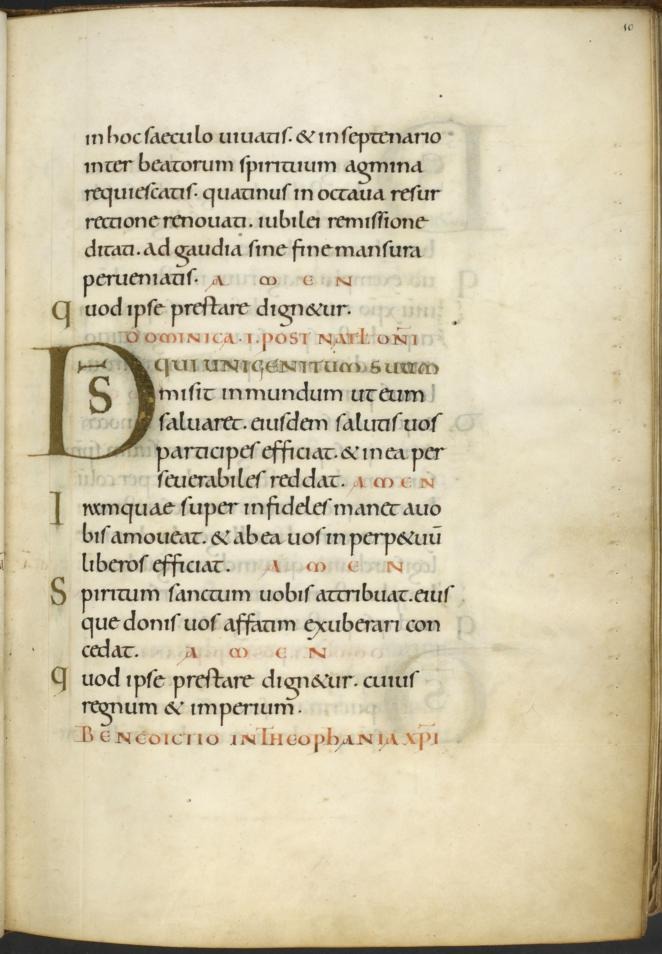 10
in hoc saeculo uiuatis. & in septenario
inter beatorum spirituum agmina
requiescatis. quatinus in octaua resur
rectione renouati. iubilei remissione
ditati. ad gaudia sine fine mansura
perueniatis. A M E N
quod ipse prestare dign&ur.
DOMINICA. I. POST NATL DNI
DS QUI UNIGENITUM SUUM
misit in mundum ut eum
saluaret. eiusdem salutis uos
participes efficiat. & in ea per
seuerabiles reddat. AMEN
Iramquae super infideles manet a uo
bis amoueat. & ab ea uos in perp&uū
liberos efficiat. A M E N
Spiritum sanctum uobis attribuat. eius
que donis uos affatim exuberari con
cedat. A M E N
quod ipse prestare dign&ur. cuius
regnum & imperium.
BENEDICTIO IN THEOPHANIA XPI